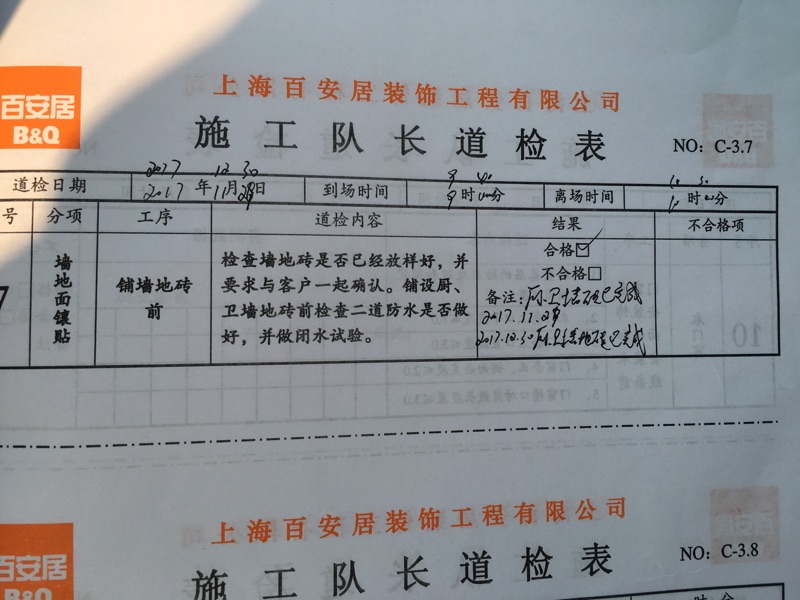 百安居
B&Q
上海百安居装饰工程有限公司
施工队长道检表
NO：C-3.7
2017 12 30 9 40 10 30
道检日期 2017年11月28日 到场时间 9时00分 离场时间 10时00分
号 分项 工序 道检内容 结果 不合格项
7 墙地面镶贴 铺墙地砖前
检查墙地砖是否已经放样好，并
要求与客户一起确认。铺设厨、
卫墙地砖前检查二道防水是否做
好，并做闭水试验。
合格☑
不合格□
备注：厨卫墙砖已完成
2017.11.28
2017.12.30厨卫墙地砖已完成
上海百安居装饰工程有限公司
百安居
B&Q
施工队长道检表
NO：C-3.8
时 分